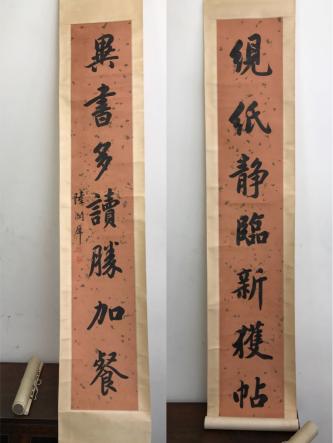 絸紙静臨新獲帖
異書多讀勝加餐
陸潤庠